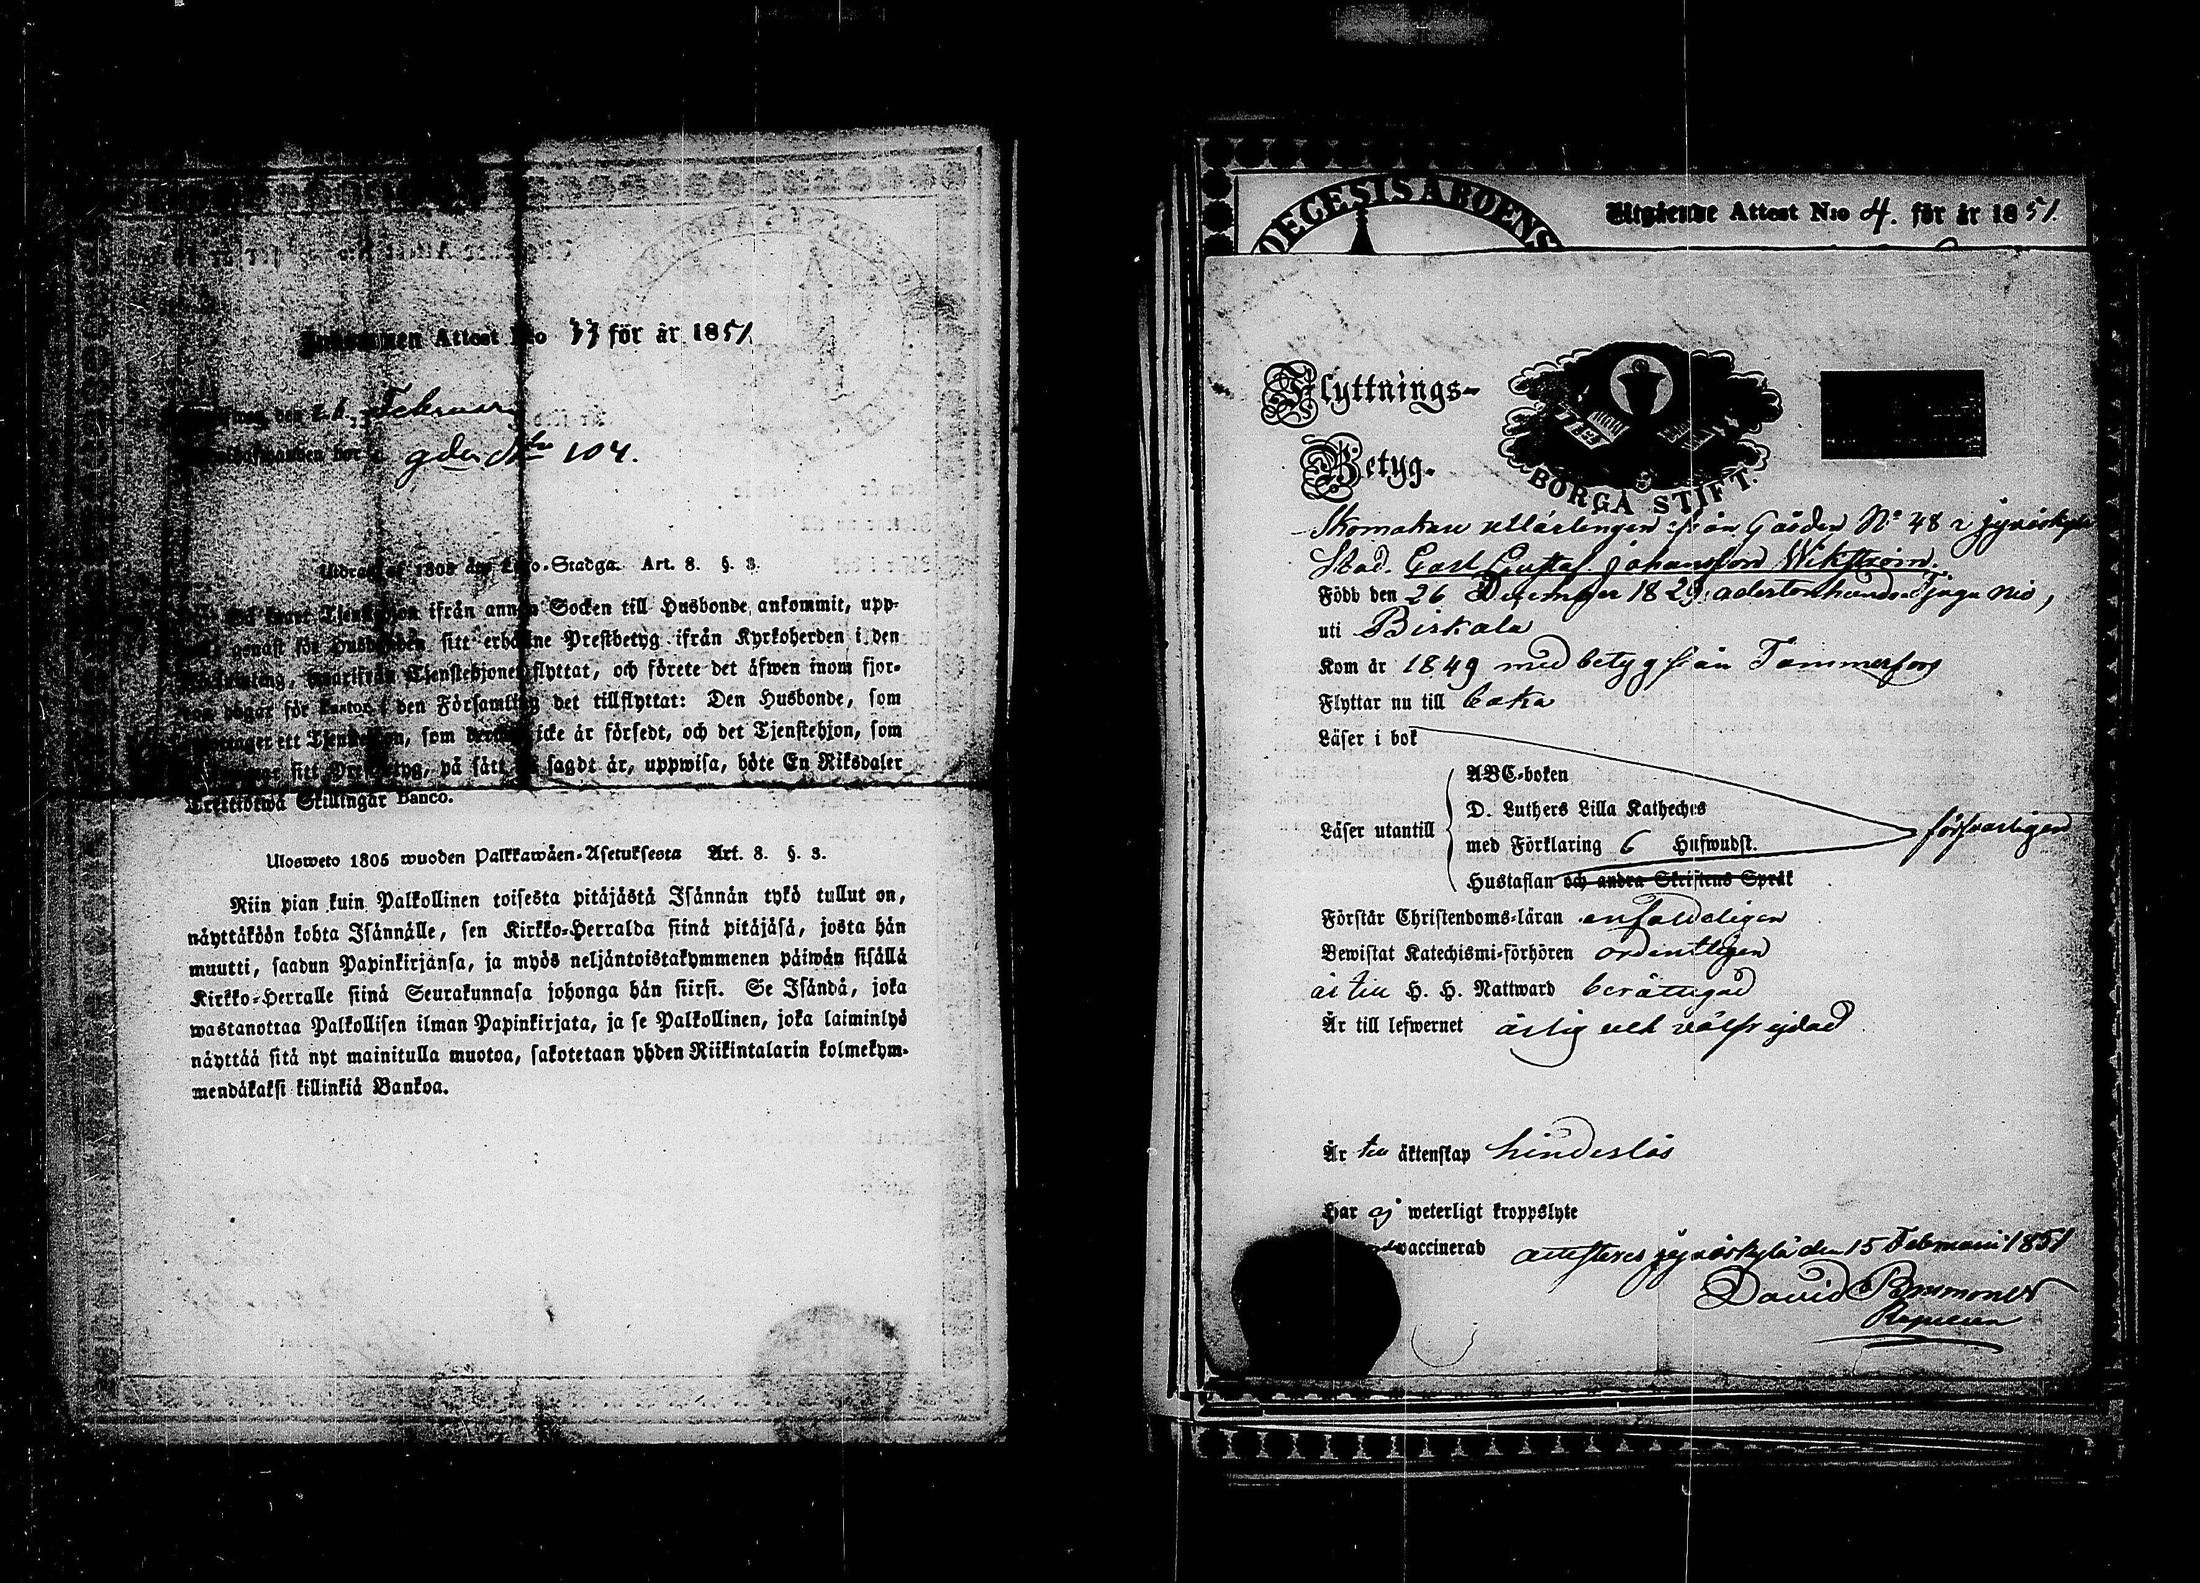 Inkommen Attest N:o 33 för år 1851
den 26 Februari
gden N:o 104.
Utdrag af 1805 års Lego-Stadga. Art. 8. §. 3.
Tjenstehjon ifrån annan Socken till Husbonde ankommit, upp-
genast för Husbonden sitt erhållne Prestbetyg ifrån Kyrkoherden i den
hwarifrån Tjenstehjonet flyttat, och förete det äfwen inom fjor-
ton dagar för Pastor i den Församling det tillflyttat: Den Husbonde, som
ett Tjenstehjon, som icke är försedt, och det Tjenstehjon, som
sitt Prestbetyg, på sätt sagdt är, uppwisa, böte En Riksdaler
Trettiotwå Skillingar Banco.
Ulosweto 1805 wuoden Palkkawäen-Asetuksesta Art. 8. §. 3.
Niin pian kuin Palkollinen toisesta pitäjästä Isännän tykö tullut on,
näyttäköön kohta Isännälle, sen Kirkko-Herralda siinä pitäjäsä, josta hän
muutti, saadun Papinkirjansa, ja myös neljäntoistakymmenen päiwän sisällä
Kirkko-Herralle siinä Seurakunnasa johonga hän siirsi. Se Isändä, joka
wastanottaa Palkollisen ilman Papinkirjata, ja se Palkollinen, joka laiminlyö
näyttää sitä nyt mainitulla muotoa, sakotetaan yhden Riikintalarin kolmekym-
mendäkaksi killinkiä Bankoa.
DECESIS ABOENS
Utgående Attest N:o 4. för år 1851
Flyttnings-
Betyg.
BORGÅ STIFT.
Skomakare utlärlingen från Gården N:o 48 i Jyväskylä
Stad. Carl Gustaf Johansson Wikström.
Född den 26 December 1829, adertonhundradetjugu nio,
uti Birkala
Kom år 1849 med betyg från Tammerfors
Flyttar nu till
Läser i bok
ABC-boken
D. Luthers Lilla Katheches
Läser utantill
med Förklaring 6 Hufwudst.
försvarligen
Hustaflan och andra Skriftens Språk
Förstår Christendoms-läran enfaldeligen
Bewistat Katechismi-förhören ordentligen
är till H. H. Nattward berättigad
Är till lefwernet ärlig och välfrejdad
Är till äktenskap hinderslös
Har ej weterligt kroppslyte
vaccinerad attesteras Jyväskylä den 15 Februarii 1851
David